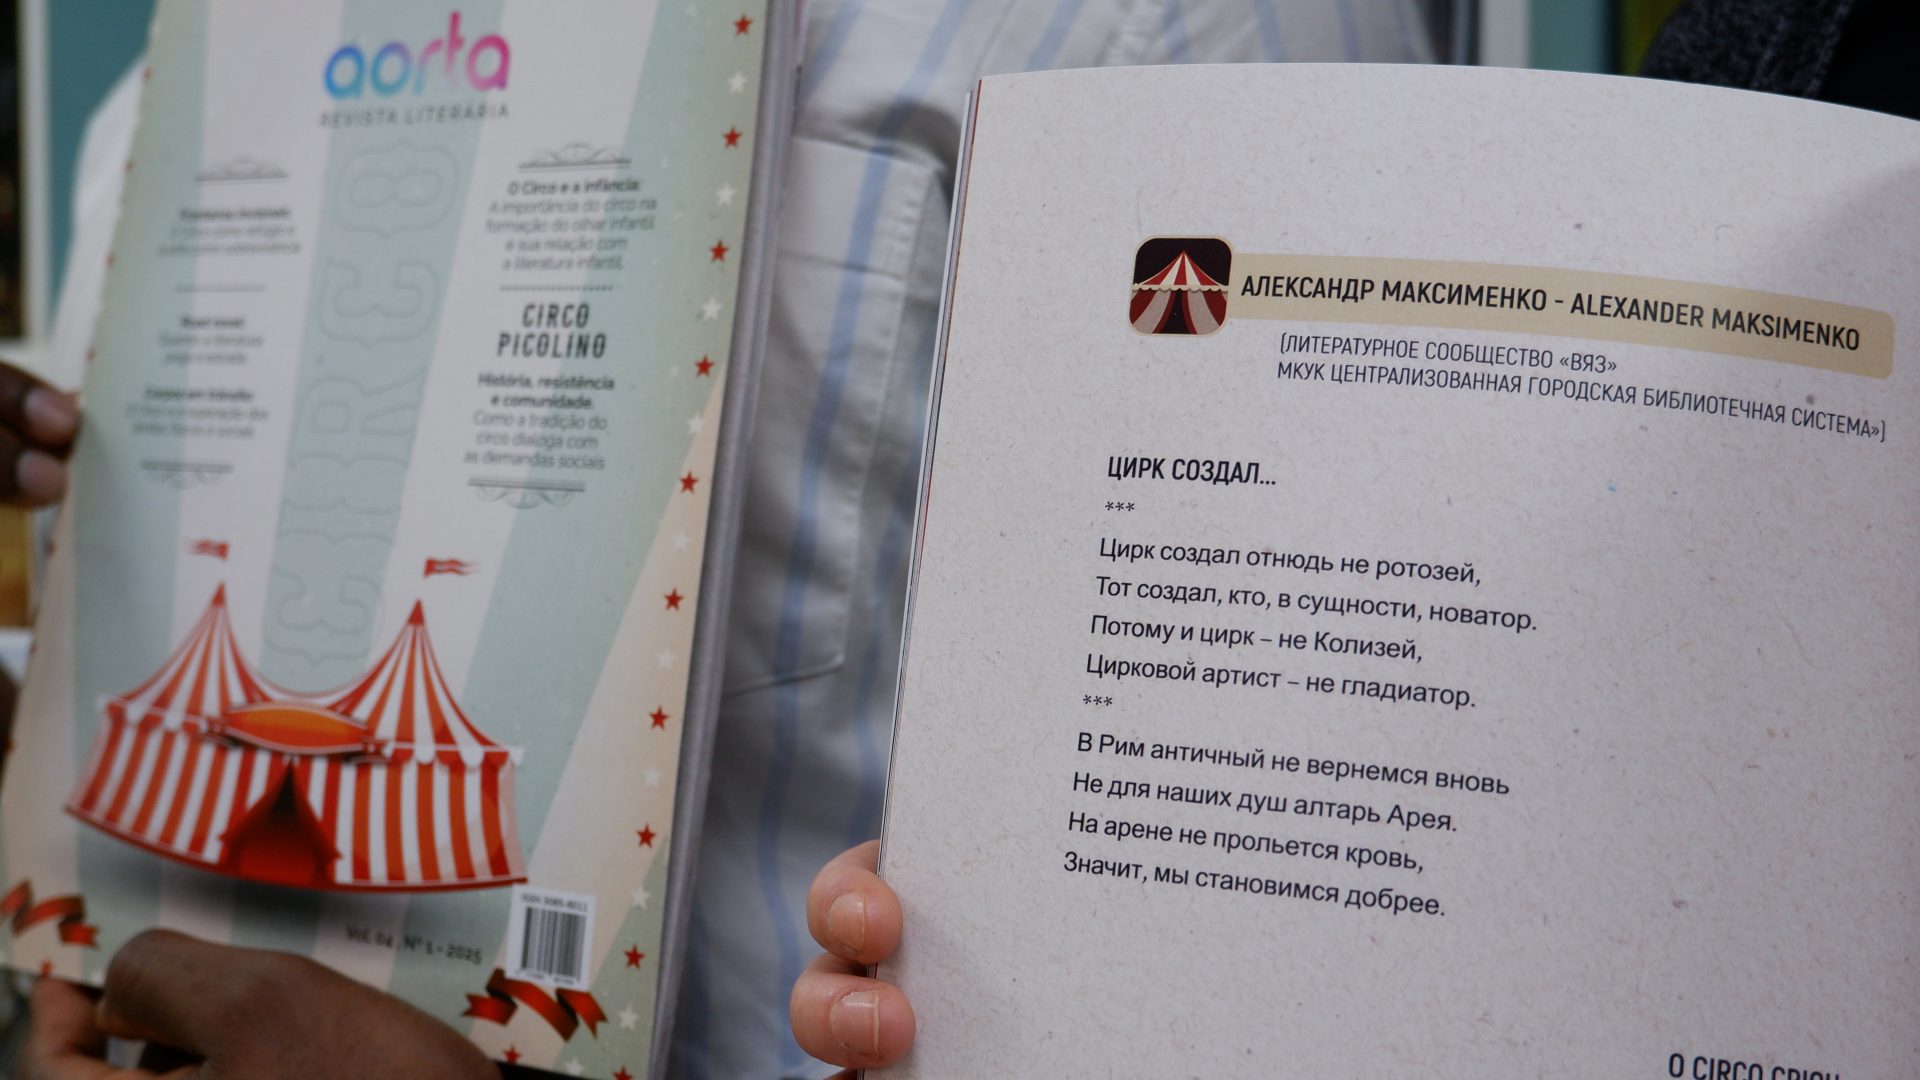 aorta
REVISTA LITERÁRIA
CIRCO
O Circo e a Infância:
A importância do circo na
formação do olhar infantil
e sua relação com
a literatura infantil.
CIRCO
PICOLINO
História, resistência
e comunidade.
Como a tradição do
circo dialoga com
as demandas sociais
Vol. 04, N° 1 - 2025
АЛЕКСАНДР МАКСИМЕНКО - ALEXANDER MAKSIMENKO
(ЛИТЕРАТУРНОЕ СООБЩЕСТВО «ВЯЗ»
МКУК ЦЕНТРАЛИЗОВАННАЯ ГОРОДСКАЯ БИБЛИОТЕЧНАЯ СИСТЕМА»)
ЦИРК СОЗДАЛ...
***
Цирк создал отнюдь не ротозей,
Тот создал, кто, в сущности, новатор.
Потому и цирк – не Колизей,
Цирковой артист – не гладиатор.
***
В Рим античный не вернемся вновь
Не для наших душ алтарь Арея.
На арене не прольется кровь,
Значит, мы становимся добрее.
O CIRCO